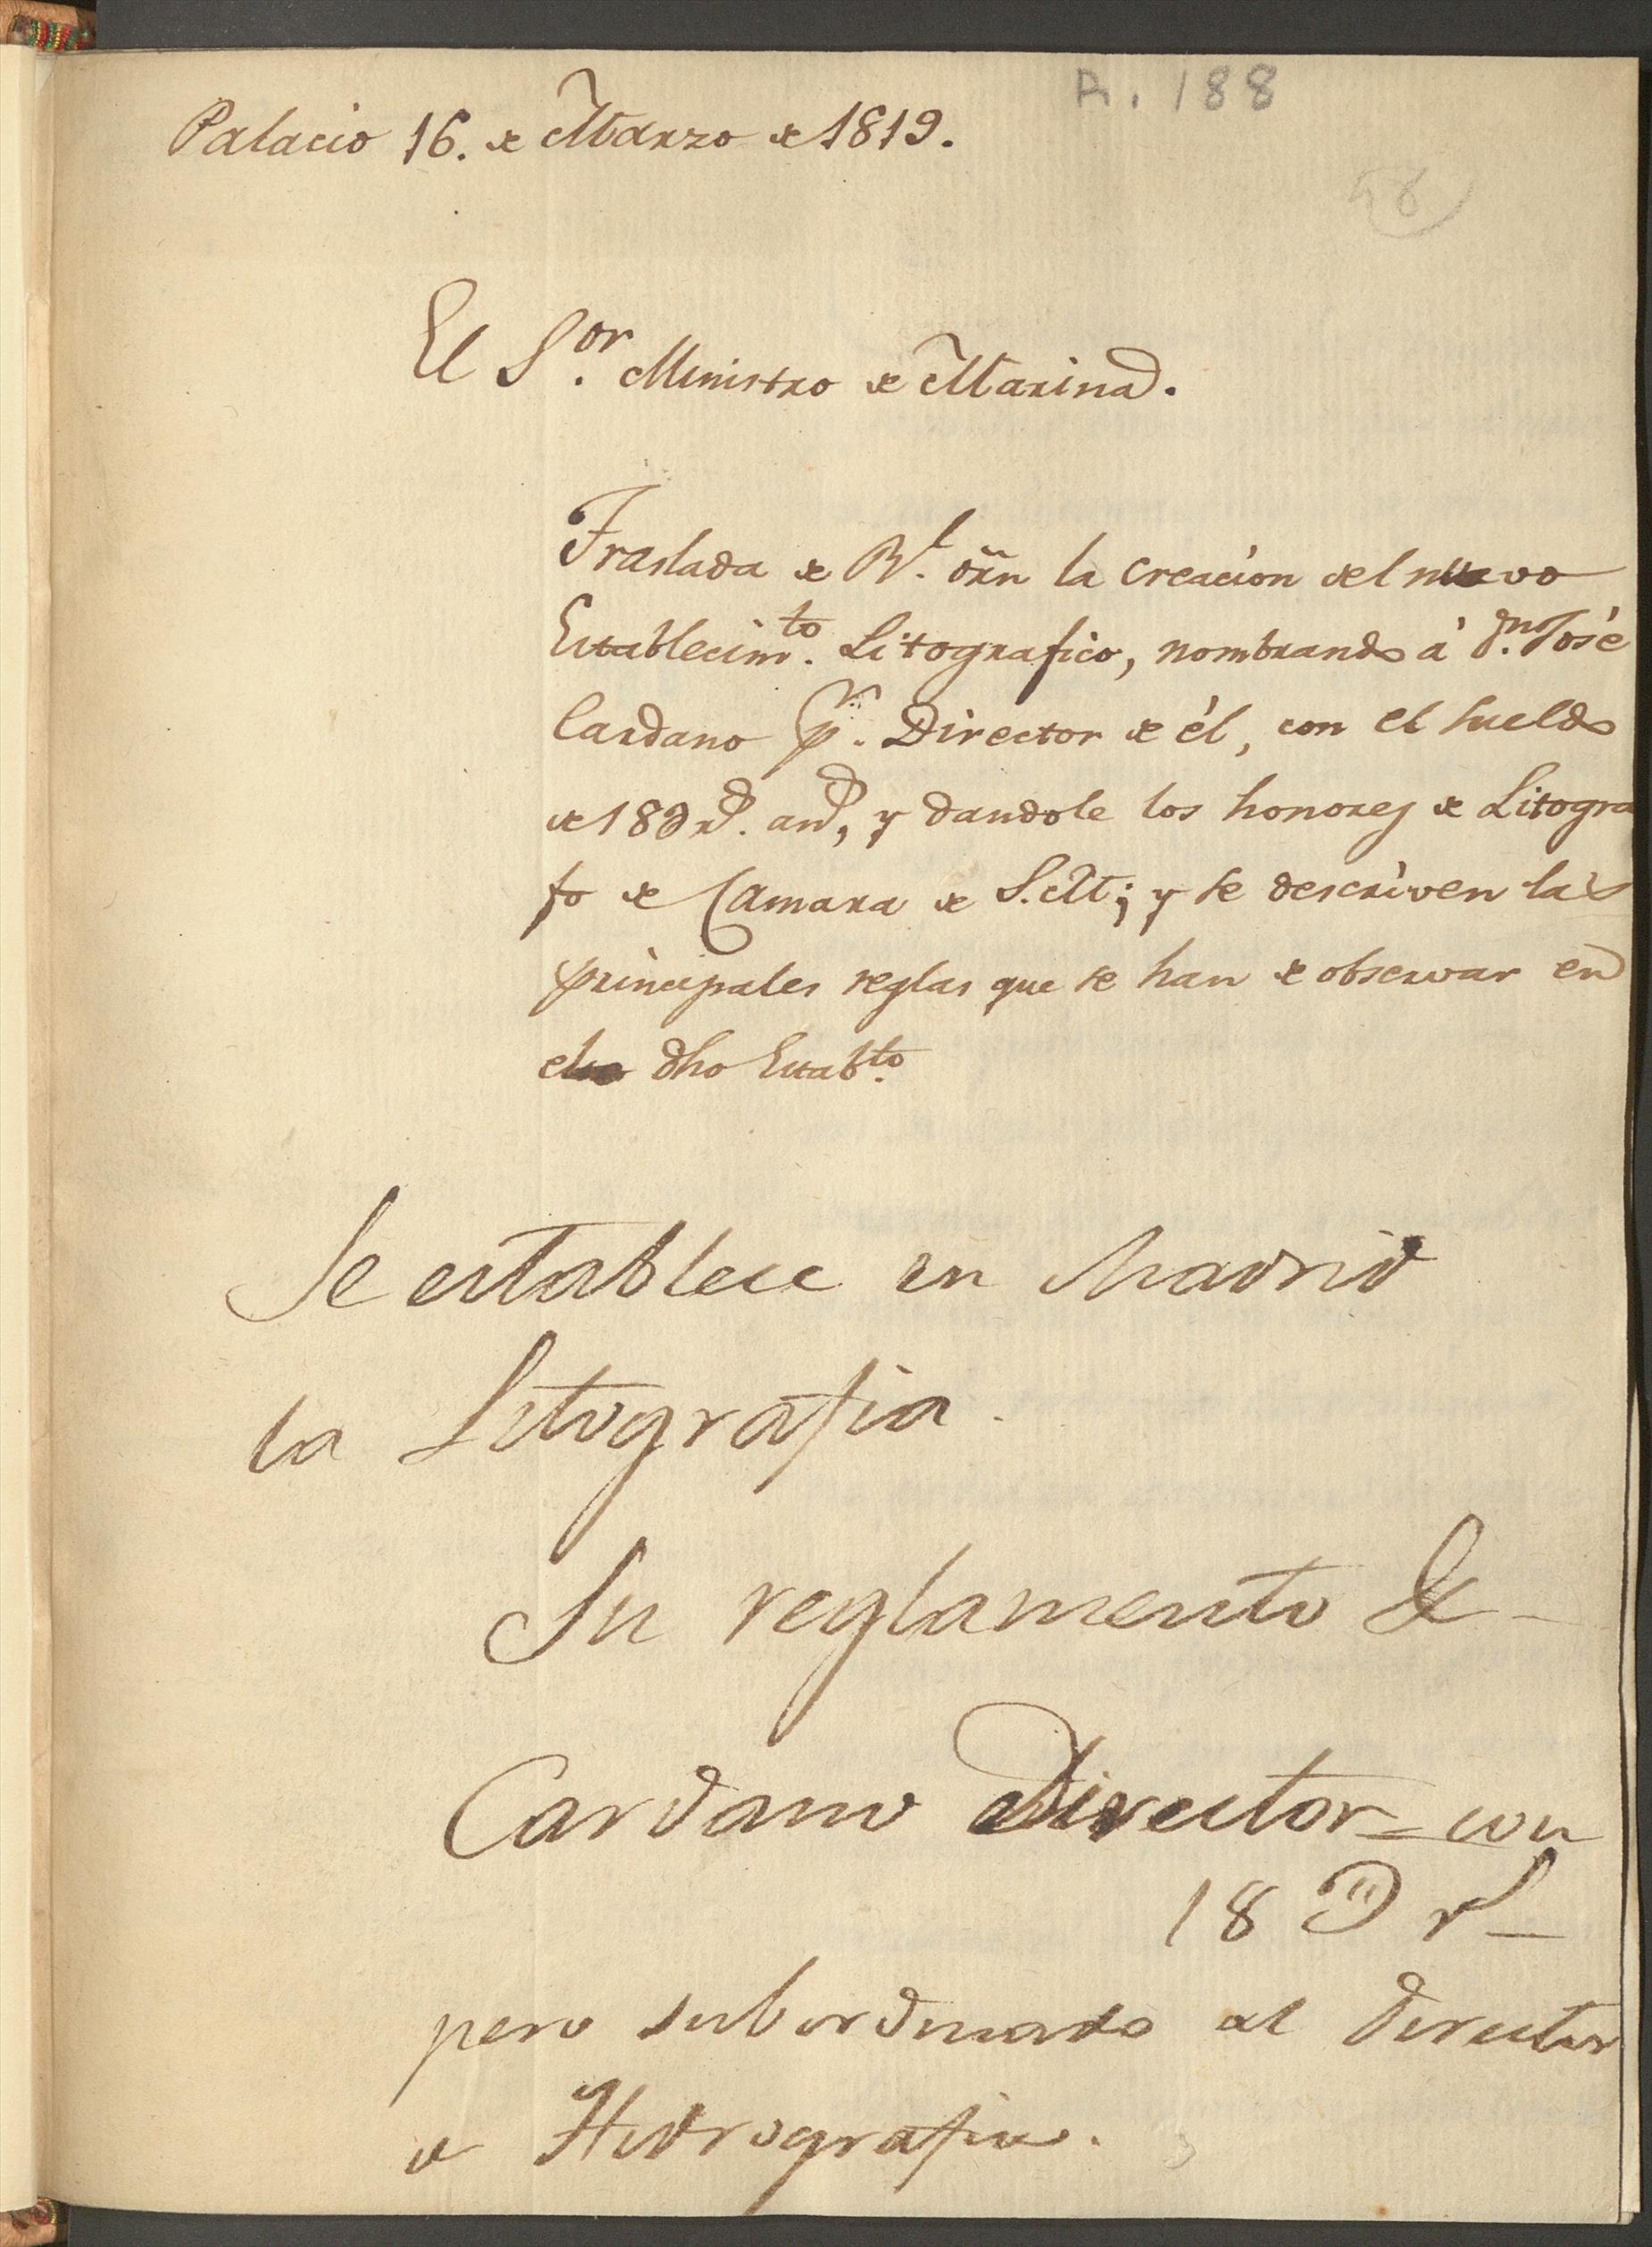 R. 188
Palacio 16. de Marzo de 1819.
El S.or Ministro de Marina.
Traslada de Rl. orñ la creacion del nuevo
Establecim.to Litografico, nombrando à Dn. José
Cardano pr. Director de él, con el sueldo
de 18 rs. ans, y dandole los honores de Litogra
fo de Camara de S.M; y se descriven las
principales reglas que se han de observar en
el dho Establ.to
Se establece en Madrid
la Litografia.
Su reglamento &
Cardano Director = con
18 rs
pero subordinado al Director
de Hidrografia.